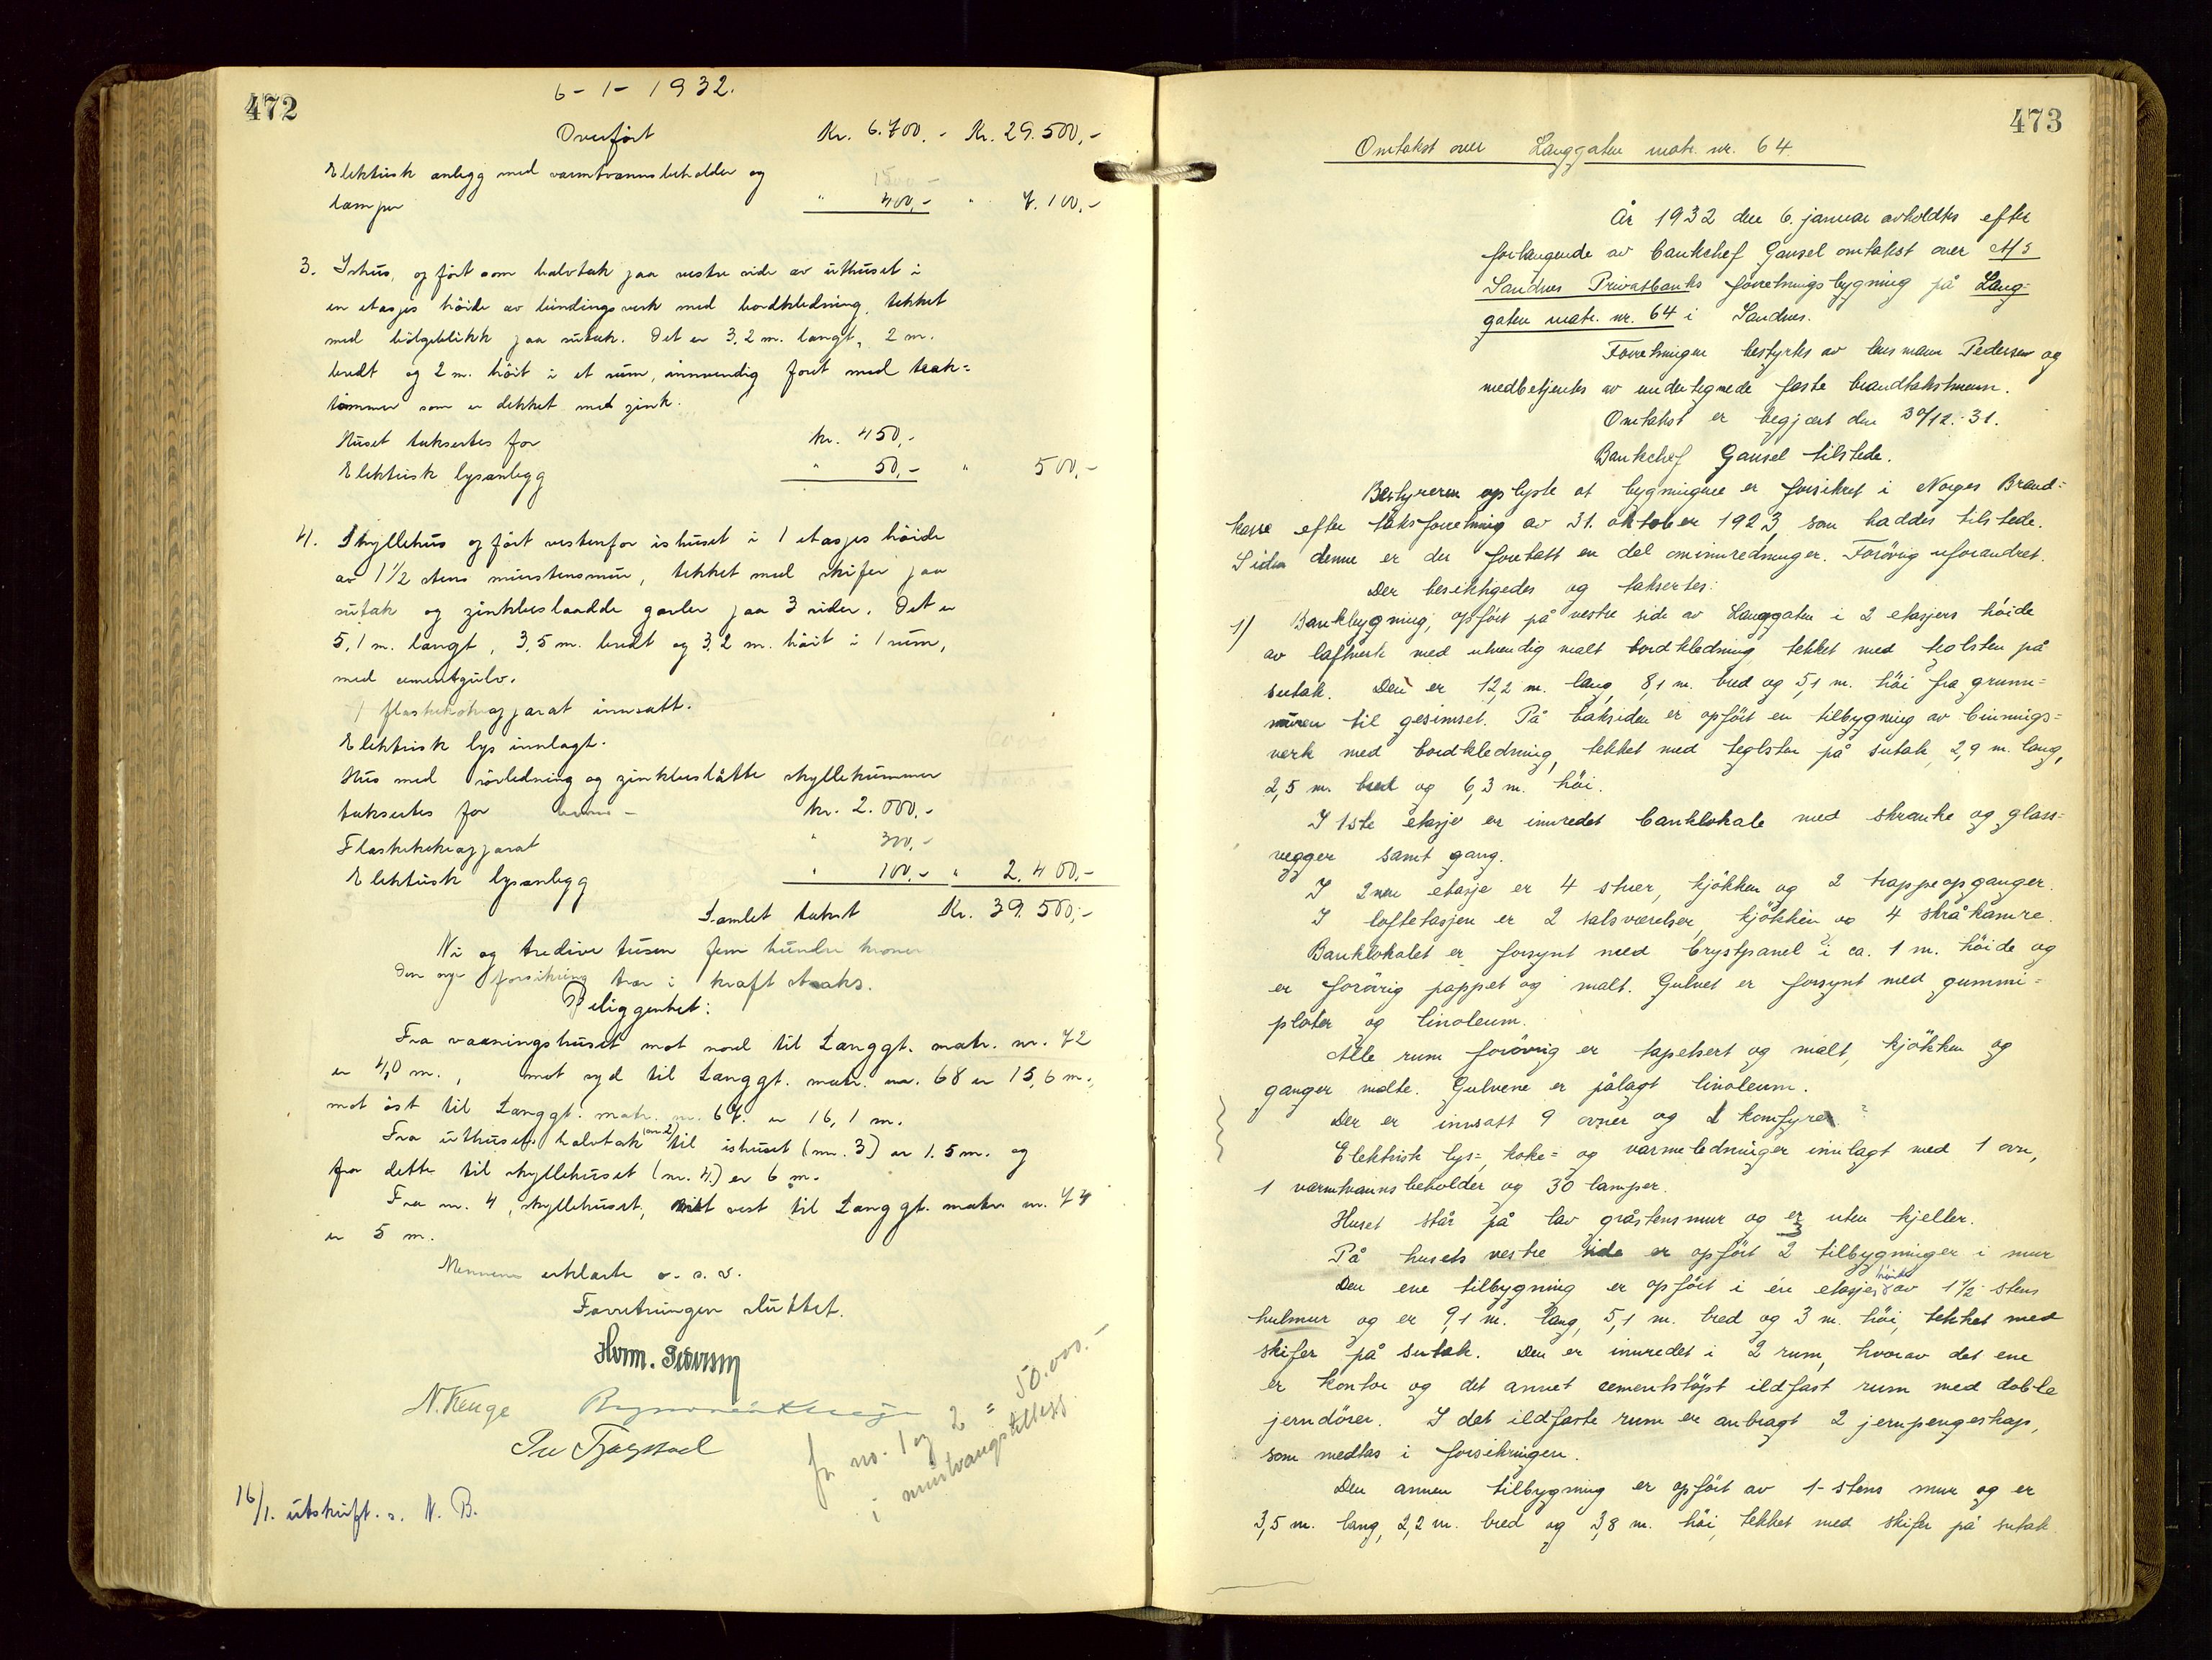 472
6-1-1932.
Overført Kr. 6.700.- Kr. 29.500,-
Elektrisk anlegg med varmtvannsbeholder og 1500.-
lamper " 400,- " 7.100,-
3. Ishus, opført som halvtak paa vestre side av uthuset i
en etasjes høide av bindingsverk med bordkledning, tekket
med bølgeblikk paa sutak. Det er 3,2 m. langt, 2 m.
bredt og 2 m. høit i et rum, innvendig foret med trak=
tømmer som er dekket med zink.
Huset takseres for kr. 450,-
Elektrisk lysanlegg " 50,- " 500,-
4. Skyllehus opført vestenfor ishuset i 1 etasjes høide
av 1 1/2 stens murstensmur, tekket med skifer paa
sutak og zinkbeslaadde gavler paa 3 sider. Det er
5,1 m. langt, 3,5 m. bredt og 3,2 m. høit i 1 rum,
med cementgulv.
1 flaskekokeapparat innsatt.
Elektrisk lys innlagt.
Hus med rørledning og zinkbeslåtte skyllekummer
takseres for kr. 2.000,-
Flaskekokeapparat " 300,-
Elektrisk lysanlegg " 100,- " 2.400,-
Samlet takst Kr. 39.500,-
Ni og tredive tusen fem hundre kroner
Den nye forsikring trær i kraft straks.
Beliggenhet:
Fra vaaningshuset mot nord til Langgt. matr. nr. 72
er 4,0 m., mot syd til Langgt. matr. nr. 68 er 15,6 m.,
mot øst til Langgt. matr. nr. 67. er 16,1 m.
Fra uthusets halvtak (nr 2) til ishuset (nr. 3) er 1.5 m. og
fra dette til skyllehuset (nr. 4.) er 6 m.
Fra nr. 4, skyllehuset, mot vest til Langgt. matr. nr. 74
er 5 m.
Mennene erklærte o. s. v.
Forretningen sluttet.
Homm. Pedersen
N. Kenge
Per Tjaagstad
for no. 1 og 2 = 50.000.-
i murtvangstillegg
16/1. utskrift. s. N. B.
473
Omtakst over Langgaten matr. nr. 64
År 1932 den 6. januar avholdtes efter
forlangende av bankchef Gausel omtakst over A/S
Sandnes Privatbanks forretningsbygning på Lang=
gaten matr. nr. 64 i Sandnes.
Forretningen bestyrtes av lensmann Pedersen og
medbetjentes av undertegnede faste brandtakstmenn.
Omtakst er begjært den 30/12.-31.
Bankchef Gausel tilstede.
Bestyreren oplyste at bygningene er forsikret i Norges Brand=
kasse efter takstforretning av 31. oktober 1923, som haddes tilstede.
Siden denne er der foretatt en del ominnredninger. Forøvrig uforandret.
Der besiktigedes og taksertes:
1) Bankbygning, opført på vestre side av Langgaten i 2 etasjers høide
av laftverk med utvendig malt bordkledning tekket med teglsten på
sutak. Den er 12,2 m. lang, 8,1 m. bred og 5,1 m. høi fra grunn=
muren til gesimset. På baksiden er opført en tilbygning av binnings=
verk med bordkledning, tekket med teglsten på sutak, 2,9 m. lang,
2,5 m. bred og 6,3 m. høi.
I 1ste etasje er innredet banklokale med skranke og glass=
vegger samt gang.
I 2nen etasje er 4 stuer, kjøkken og 2 trappeopganger.
I loftetasjen er 2 salsværelser, kjøkken og 4 skråkamre.
Banklokalet er forsynt med brystpanel i ca. 1 m. høide og
er forøvrig pappet og malt. Gulvet er forsynt med gummi=
plater og linoleum.
Alle rum forøvrig er tapetsert og malt, kjøkken og
ganger malte. Gulvene er pålagt linoleum.
Der er innsatt 9 ovner og 2 komfyrer ?
Elektrisk lys=, koke= og varmeledninger innlagt med 1 ovn,
1 varmtvannsbeholder og 30 lamper.
Huset står på lav gråstensmur og er uten kjeller.
På husets vestre side er opført 2 3 tilbygninger i mur
Den ene tilbygning er opført i én etasjes høide av 1 1/2 stens
hulmur og er 9,1 m. lang, 5,1 m. bred og 3 m. høi, tekket med
skifer på sutak. Den er innredet i 2 rum, hvorav det ene
er kontor og det annet cementstøpt ildfast rum med doble
jerndører. I det ildfaste rum er anbragt 2 jernpengeskap,
som medtas i forsikringen.
Den annen tilbygning er opført av 1-stens mur og er
3,5 m. lang, 2,2 m. bred og 3,8 m. høi, tekket med skifer på sutak.